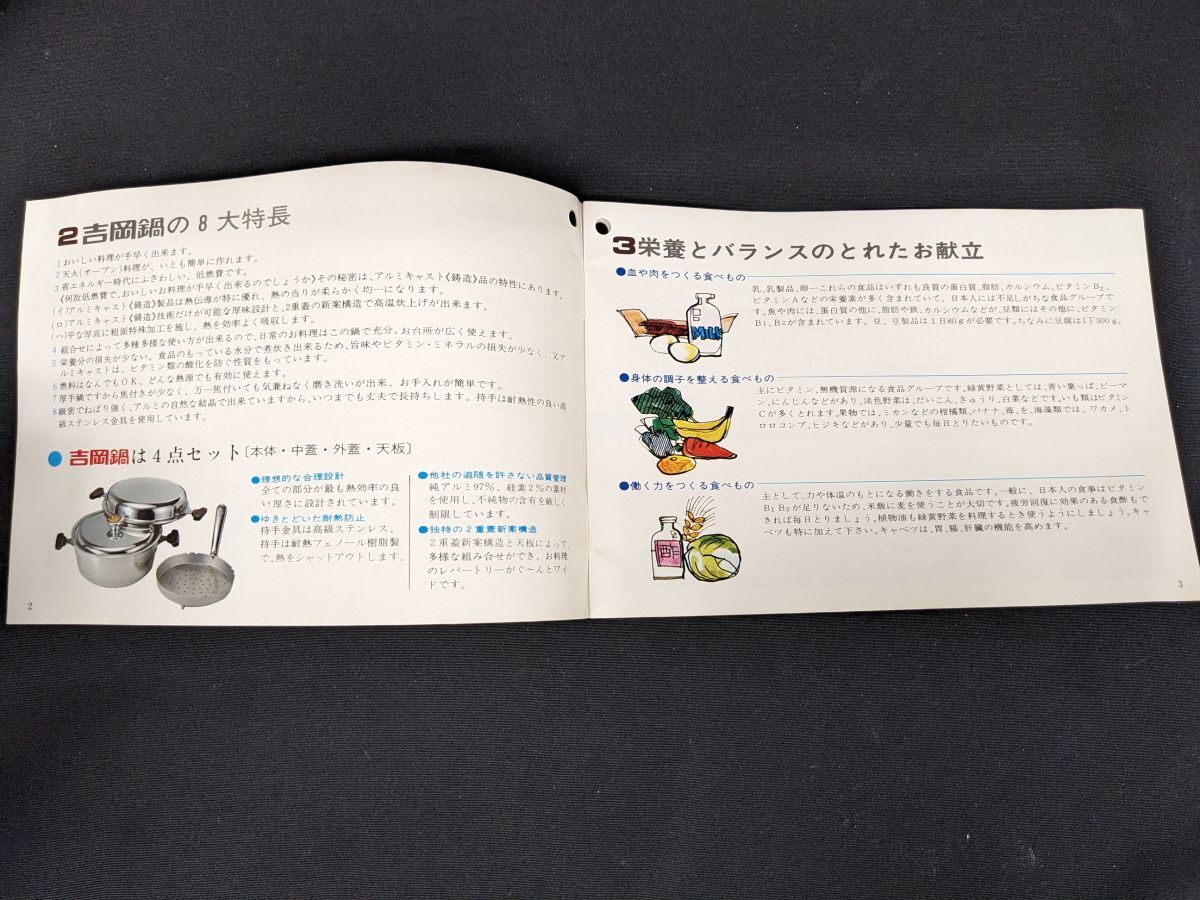 2 吉岡鍋の 8 大特長
1 おいしい料理が手早く出来ます。
2 天火(オーブン)料理が、いとも簡単に作れます。
3 省エネルギー時代にふさわしい、低燃費です。
《何故低燃費で、おいしいお料理が手早く出来るのでしょうか》その秘密は、アルミキャスト《鋳造》品の特性にあります。
(イ)アルミキャスト《鋳造》製品は熱伝導が特に優れ、熱の当りが柔らかく均一になります。
(ロ)アルミキャスト《鋳造》技術だけが可能な厚味設計と、2重蓋の新案構造で高温炊上げが出来ます。
(ハ)平な厚底に粗面特殊加工を施し、熱を効率よく吸収します。
4 組合せによって多種多様な使い方が出来るので、日常のお料理はこの鍋で充分。お台所が広く使えます。
5 栄養分の損失が少ない。食品のもっている水分で煮炊き出来るため、旨味やビタミン・ミネラルの損失が少なく、又ア
ルミキャストは、ビタミン類の酸化を防ぐ性質をもっています。
6 燃料はなんでもOK、どんな熱源でも有効に使えます。
7 厚手鍋ですから焦付きが少なく、万一焦付いても気兼ねなく磨き洗いが出来、お手入れが簡単です。
8 緻密でねばり強く、アルミの自然な結晶で出来ていますから、いつまでも丈夫で長持ちします。持手は耐熱性の良い高
級ステンレス金具を使用しています。
●吉岡鍋は4点セット〔本体・中蓋・外蓋・天板〕
●理想的な合理設計
全ての部分が最も熱効率の良
い厚さに設計されています。
●ゆきとどいた耐熱防止
持手金具は高級ステンレス、
持手は耐熱フェノール樹脂製
で、熱をシャットアウトします。
●他社の追随を許さない品質管理
純アルミ97%、硅素2%の素材
を使用し、不純物の含有を厳しく
制限しています。
●独特の2重蓋新案構造
2重蓋新案構造と天板によって、
多様な組み合せができ、お料理
のレパートリーがぐ〜んとワイ
ドです。
2
3 栄養とバランスのとれたお献立
●血や肉をつくる食べもの
乳、乳製品、卵―これらの食品はいずれも良質の蛋白質、脂肪、カルシウム、ビタミンB₂、
ビタミンAなどの栄養素が多く含まれていて、日本人には不足しがちな食品グループで
す。魚や肉には、蛋白質の他に、脂肪や鉄、カルシウムなどが、豆類にはその他に、ビタミン
B1、B₂が含まれています。豆、豆製品は1日80gが必要です。ちなみに豆腐は1丁300g。
MILK
●身体の調子を整える食べもの
主にビタミン、無機質源になる食品グループです。緑黄野菜としては、青い葉っぱ、ピーマ
ン、にんじんなどがあり、淡色野菜は、だいこん、きゅうり、白菜などです。いも類はビタミン
Cが多くとれます。果物では、ミカンなどの柑橘類、バナナ、苺を、海藻類では、ワカメ、ト
ロロコンブ、ヒジキなどがあり、少量でも毎日とりたいものです。
●働く力をつくる食べもの
主として、力や体温のもとになる働きをする食品です。一般に、日本人の食事はビタミン
B₁B₂が足りないため、米飯に麦を使うことが大切です。疲労回復に効果のある食酢もで
きれば毎日とりましょう。植物油も緑黄野菜を料理するとき使うようにしましょう。キャ
ベツも特に加えて下さい。キャベツは、胃、腸、肝臓の機能を高めます。
酢
3